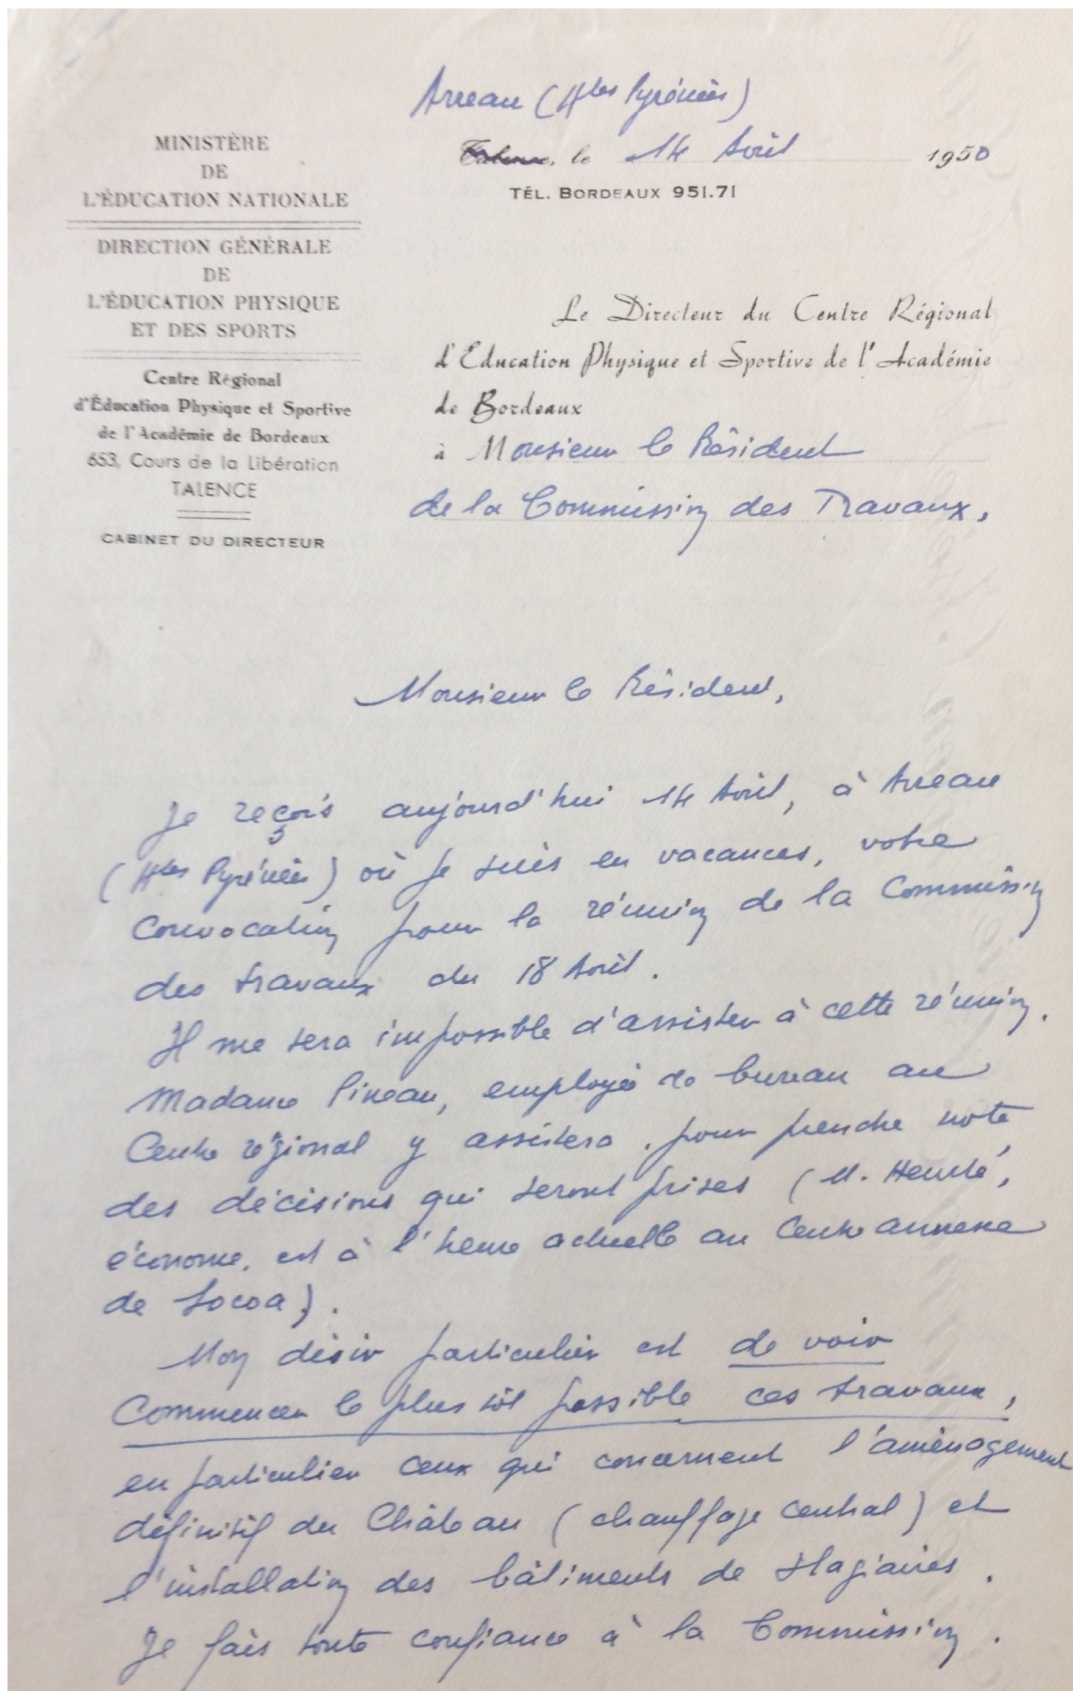 Arreau (Htes Pyrénées)
MINISTÈRE
DE
L'ÉDUCATION NATIONALE
DIRECTION GÉNÉRALE
DE
L'ÉDUCATION PHYSIQUE
ET DES SPORTS
Centre Régional
d'Éducation Physique et Sportive
de l'Académie de Bordeaux
653, Cours de la Libération
TALENCE
CABINET DU DIRECTEUR
Talence, le 14 Avril 1950
TÉL. BORDEAUX 951.71
Le Directeur du Centre Régional
d'Education Physique et Sportive de l'Académie
de Bordeaux
à Monsieur le Président
de la Commission des Travaux,
Monsieur le Président,
Je reçois aujourd'hui 14 Avril, à Arreau
(Htes Pyrénées) où je suis en vacances, votre
convocation pour la réunion de la Commission
des travaux du 18 Avril.
Il me sera impossible d'assister à cette réunion.
Madame Pineau, employée de bureau au
Centre régional y assistera, pour prendre note
des décisions qui seront prises (M.
économe, est à l'heure actuelle au Centre annexe
de Socoa).
Mon désir particulier est de voir
commencer le plus tôt possible ces travaux,
en particulier ceux qui concernent l'aménagement
définitif du Château (chauffage central) et
l'installation des bâtiments de stagiaires.
Je fais toute confiance à la Commission.